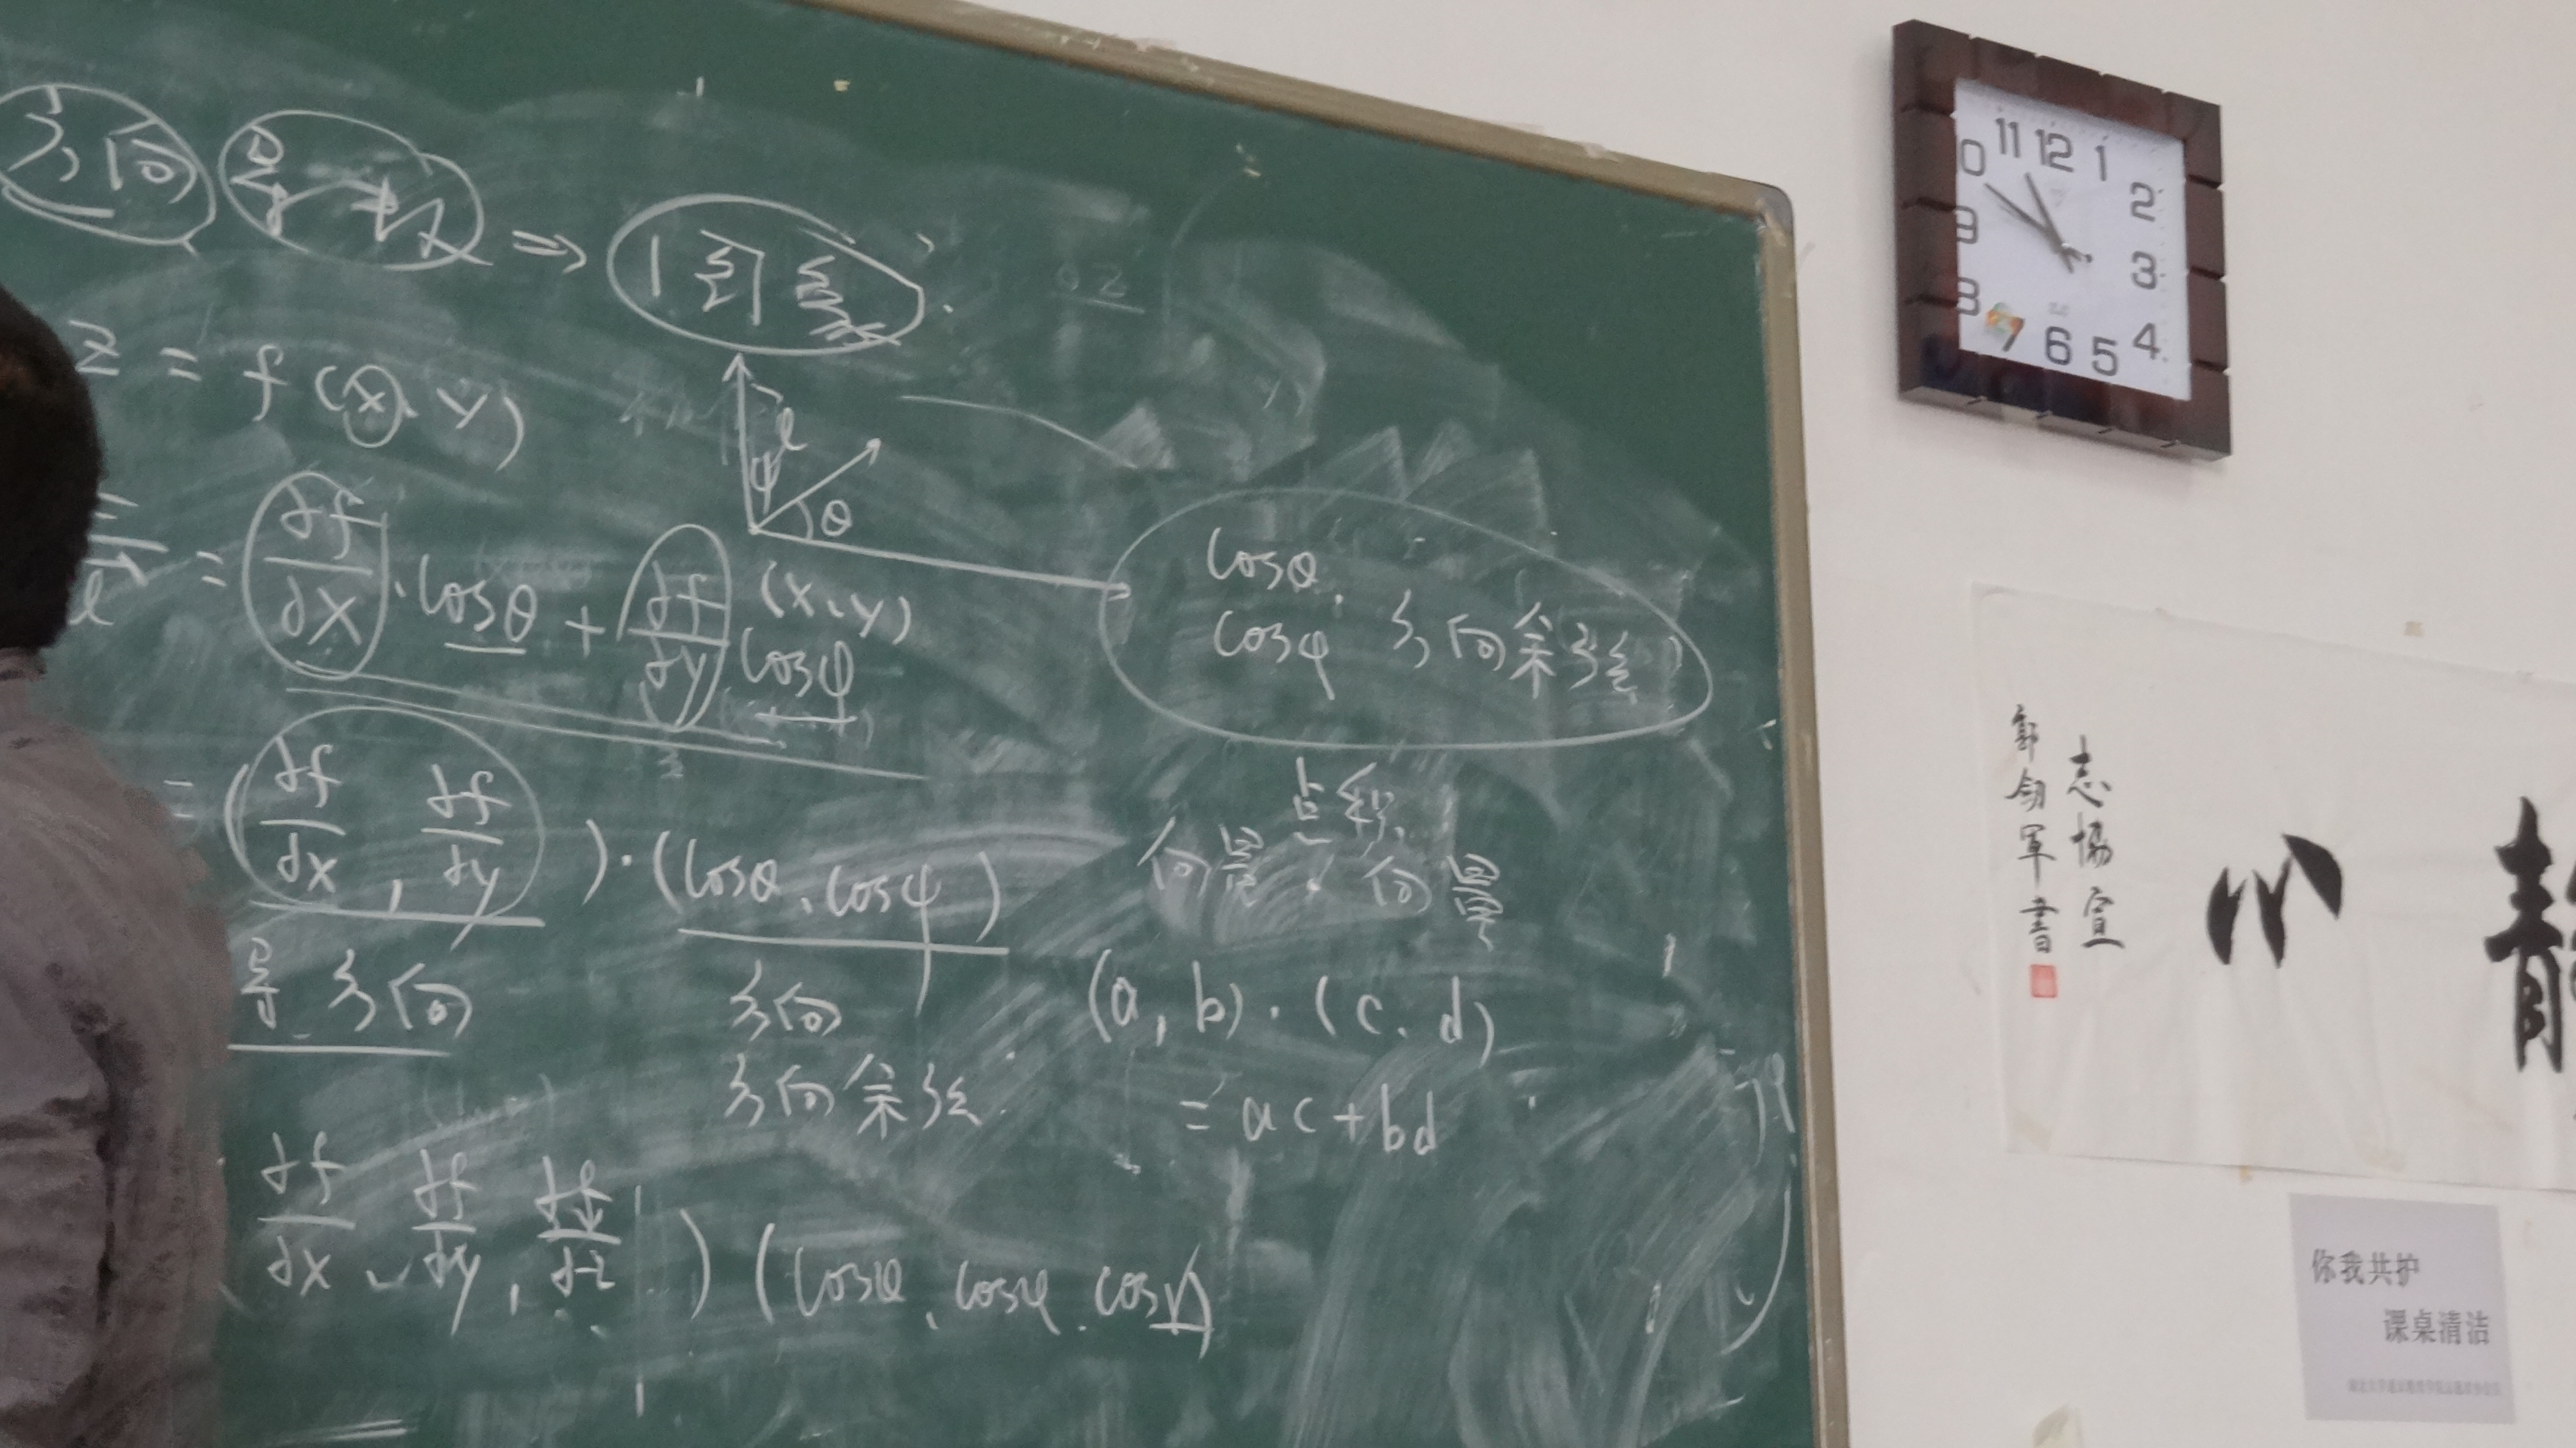 方向 导数 ⇒ 偏导数.
z = f(x、y)
l
ψ
θ
(x、y)
= ∂f/∂x · cosθ + ∂f/∂y cosψ
cosθ.
cosφ 方向余弦
= (∂f/∂x , ∂f/∂y) · (cosθ、cosψ)
导 方向
方向
方向余弦
点积
向量 · 向量
(a, b) · (c、d)
= ac+bd
∂f/∂x 、 ∂f/∂y , ∂f/∂z ) (cosθ、cosφ、cos
11 12 1
2
3
4
5
6
7
8
9
0
静
心
志协宣
郭剑军书
你我共护
课桌清洁